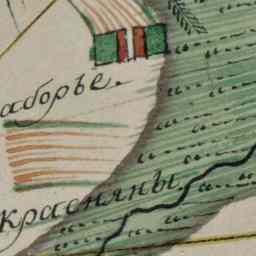 аборье.
красняны